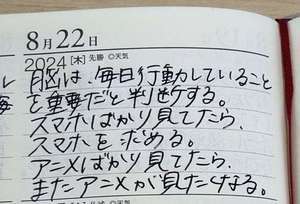 8月22日
2024 [木] 先勝 ◎天気
脳は、毎日行動していること
を重要だと判断する。
スマホばかり見てたら、
スマホを求める。
アニメばかり見てたら、
またアニメが見たくなる。